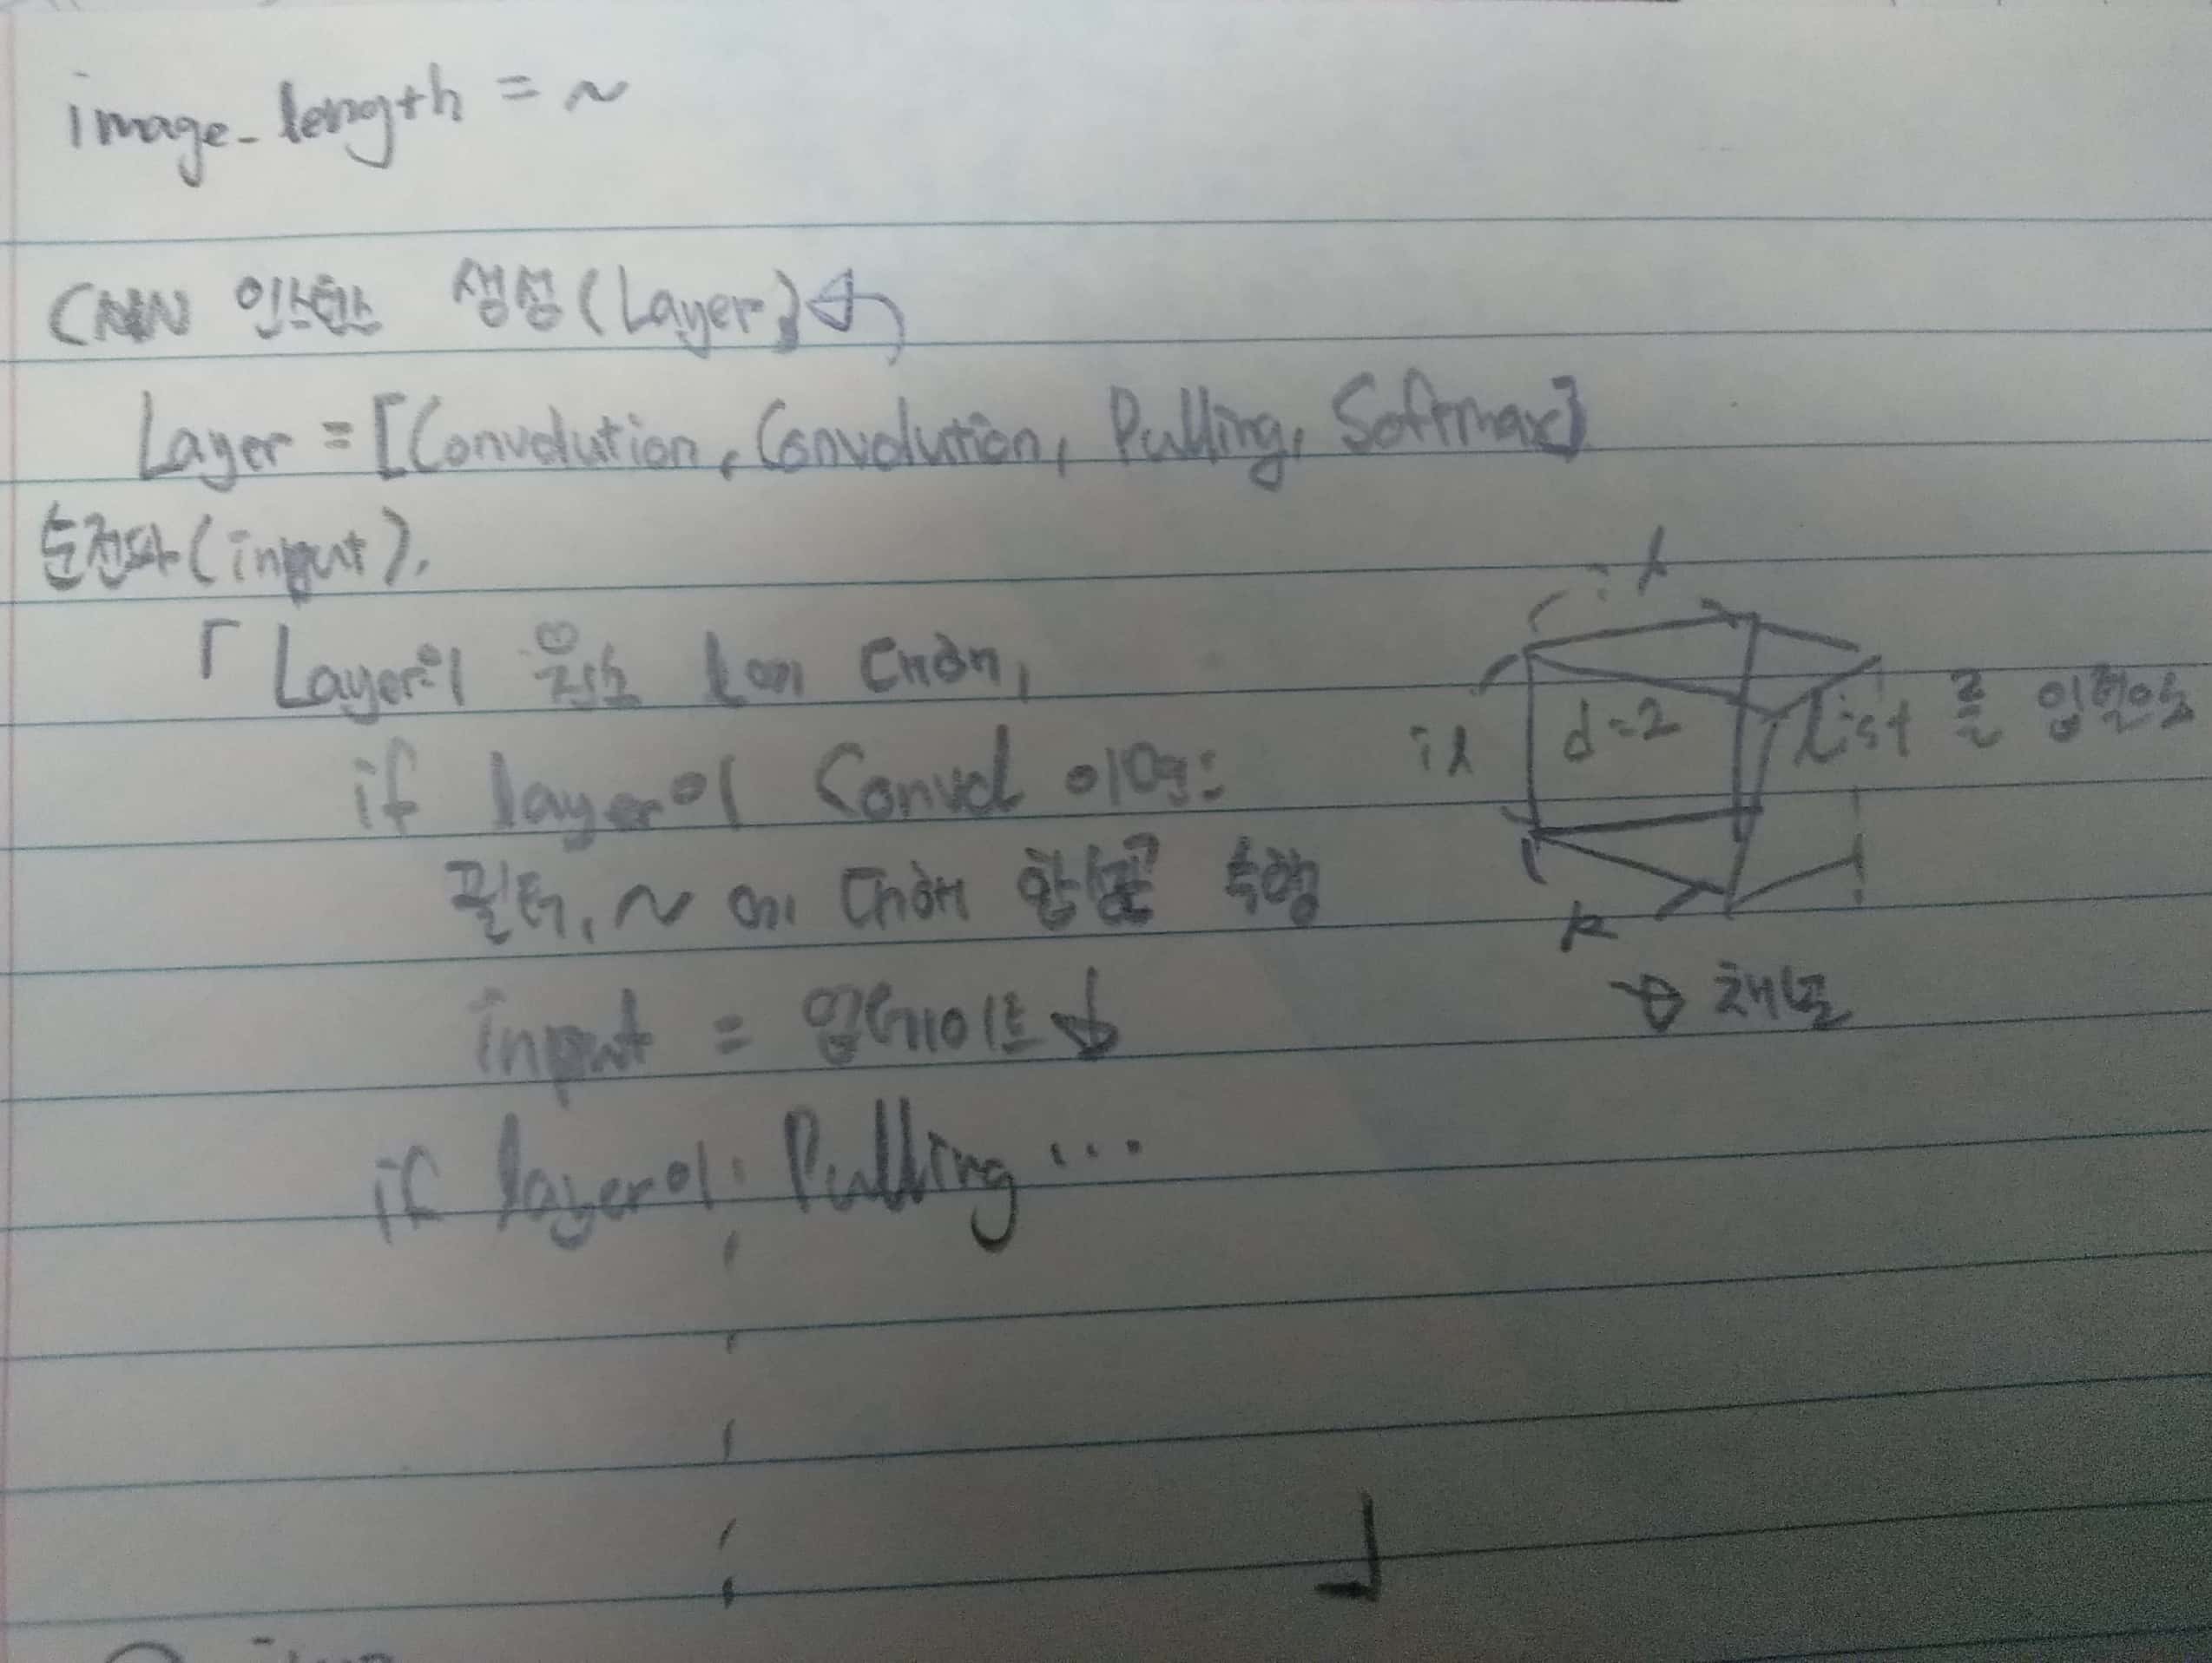 image_length = ~
CNN 인스턴스 생성(Layer)
Layer = [Convolution, Convolution, Pulling, Softmax]
순전파(input),
「Layer의 원소 l에 대해,
if layer이 Convol 이면:
필터, ~에 대해 합성곱 수행
input = 업데이트
if layer이: Pulling ...
」
il
il
d=2
list 로
k
→ 채널